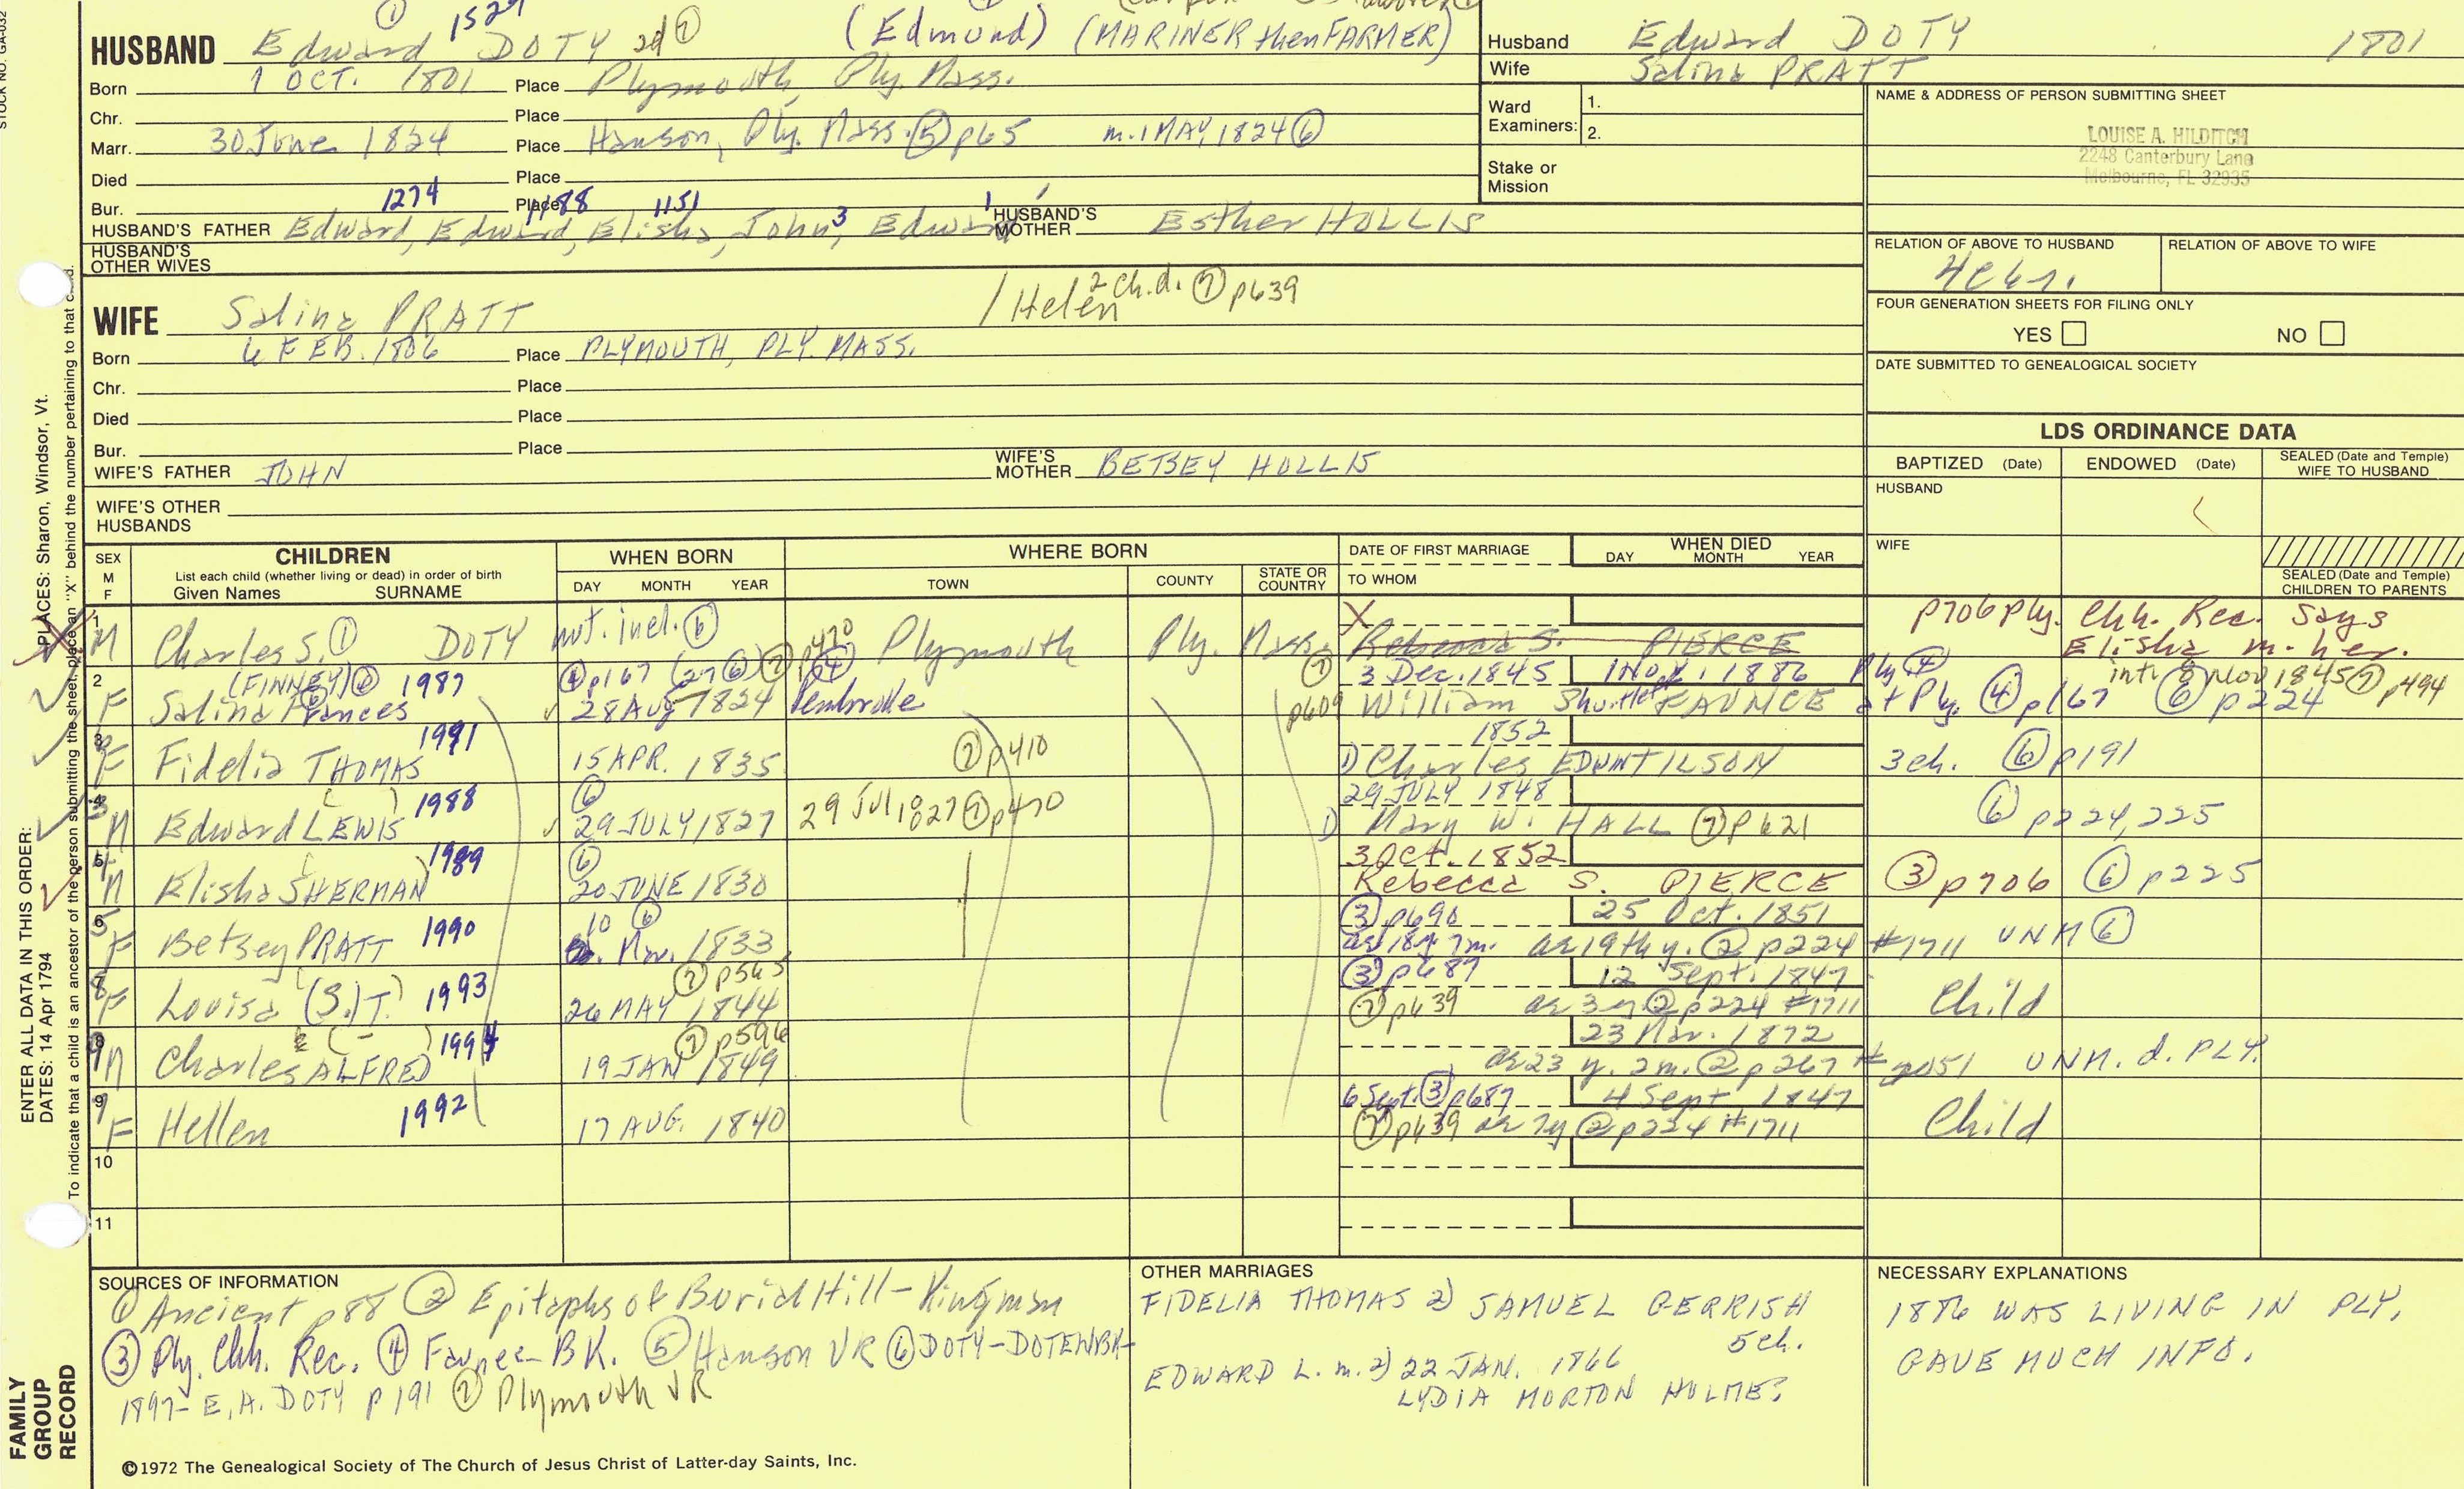 STOCK NO. GA-032
① 1527
HUSBAND Edward DOTY 2d ⑦ (Edmund) (MARINER then FARMER)
Born 7 OCT. 1801 Place Plymouth, Ply. Mass.
Chr. Place
Marr. 30 June 1824 Place Hanson, Ply. Mass. ⑤ p65 m. 1 MAY 1824 ⑥
Died Place
Bur. Place
1274 1188 1151
HUSBAND'S FATHER Edward, Edward, Elisha, John3, Edward1 HUSBAND'S MOTHER Esther HOLLIS
HUSBAND'S OTHER WIVES
Husband Edward DOTY 1801
Wife Salina PRATT
Ward Examiners: 1.
2.
Stake or Mission
NAME & ADDRESS OF PERSON SUBMITTING SHEET
LOUISE A. HILDITCH
2248 Canterbury Lane
Melbourne, FL 32935
RELATION OF ABOVE TO HUSBAND RELATION OF ABOVE TO WIFE
FOUR GENERATION SHEETS FOR FILING ONLY
YES NO
DATE SUBMITTED TO GENEALOGICAL SOCIETY
/Helen 2 ch. d. ⑦ p639
WIFE Salina PRATT
Born 6 FEB. 1806 Place PLYMOUTH, PLY. MASS.
Chr. Place
Died Place
Bur. Place
WIFE'S FATHER JOHN WIFE'S MOTHER BETSEY HOLLIS
WIFE'S OTHER HUSBANDS
LDS ORDINANCE DATA
BAPTIZED (Date) ENDOWED (Date) SEALED (Date and Temple) WIFE TO HUSBAND
HUSBAND
WIFE
SEALED (Date and Temple) CHILDREN TO PARENTS
SEX M F CHILDREN
List each child (whether living or dead) in order of birth
Given Names SURNAME
WHEN BORN DAY MONTH YEAR
WHERE BORN TOWN COUNTY STATE OR COUNTRY
DATE OF FIRST MARRIAGE TO WHOM
WHEN DIED DAY MONTH YEAR
1 M Charles S. ① DOTY not. incl. ⑥ Plymouth Ply. Mass. X Rebecca S. PIERCE p706 Ply. Chh. Rec. Says Elisha m. her.
2 F (FINNEY) ⑥ 1987 Salina Frances ④ p167 (27 ⑥) ⑦ p470 28 Aug 1824 Pembroke ⑦ p609 3 Dec. 1845 1 Nov. 1886 Ply ④ William Shurtleff FAUNCE at Ply. ④ p167 ⑥ p224 int. 8 Nov 1845 ⑦ p494
3 F Fidelia THOMAS 1991 15 APR. 1835 ⑦ p410 1852 1) Charles EDWIN TILSON 3 ch. ⑥ p191
4 3 M Edward LEWIS 1988 ⑥ 29 JULY 1827 29 Jul 1827 ⑦ p470 29 JULY 1848 1) Mary W. HALL ⑦ p621 ⑥ p224, 225
5 4 M Elisha SHERMAN 1989 ⑥ 20 JUNE 1830 3 Oct. 1852 Rebecca S. PIERCE ③ p706 ⑥ p225
6 5 F Betsey PRATT 1990 10 ⑥ Mar. 1833 ③ p690 25 Oct. 1851 ae 18 y. 7 m. ae 19th y. ② p224 #1711 UNM ⑥
7 8 F Louisa (S.) T. 1993 ⑦ p565 26 MAY 1844 ③ p687 12 Sept. 1847 ⑦ p639 ae 3 y ② p224 #1711 Child
8 9 M Charles ALFRED 1994 ⑦ p596 19 JAN 1849 23 Mar. 1872 ae 23 y. 2 m. ② p267 #2051 UNM. d. PLY.
9 7 F Hellen 1992 17 AUG. 1840 6 Sept. ③ p687 4 Sept 1847 ⑦ p639 ae 7 y ② p224 #1711 Child
10
11
SOURCES OF INFORMATION
① Ancient p88 ② Epitaphs of Burial Hill - Kingman
③ Ply. Chh. Rec. ④ Faunce BK. ⑤ Hanson VR ⑥ DOTY-DOTEN BK-
1897- E. A. DOTY p191 ⑦ Plymouth VR
OTHER MARRIAGES
FIDELIA THOMAS 2) SAMUEL GERRISH
5 ch.
EDWARD L. m. 2) 22 JAN. 1866
LYDIA MORTON HOLMES
NECESSARY EXPLANATIONS
1886 WAS LIVING IN PLY.
GAVE MUCH INFO.
©1972 The Genealogical Society of The Church of Jesus Christ of Latter-day Saints, Inc.
FAMILY GROUP RECORD
ENTER ALL DATA IN THIS ORDER:
DATES: 14 Apr 1794
PLACES: Sharon, Windsor, Vt.
To indicate that a child is an ancestor of the person submitting the sheet, place an "X" behind the number pertaining to that child.